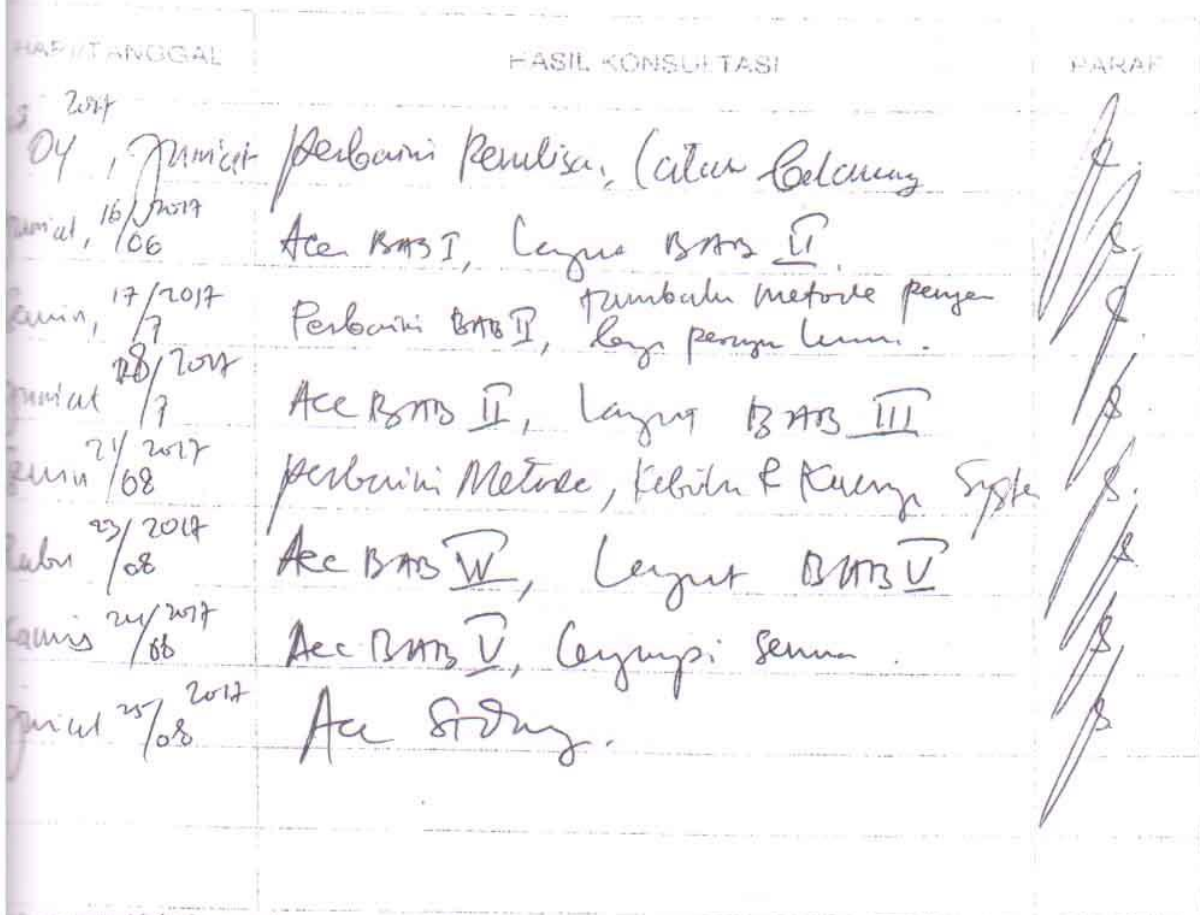 HARI/TANGGAL HASIL KONSULTASI PARAF
2017
04, Jum'at Perbaiki Penulisan, Latar Belakang
Jum'at, 16/06 2017 Acc BAB I, Lanjut BAB II.
Senin, 17/7 2017 Perbaiki BAB II, tambahkan metode
Jum'at 28/7 2017 Acc BAB II, Lanjut BAB III
Senin 21/08 2017 Perbaiki Metode, & System
Rabu 23/08 2017 Acc BAB IV, Lanjut BAB V
Kamis 24/08 2017 Acc BAB V, Lengkapi semua.
Jum'at 25/08 2017 Acc Sidang.